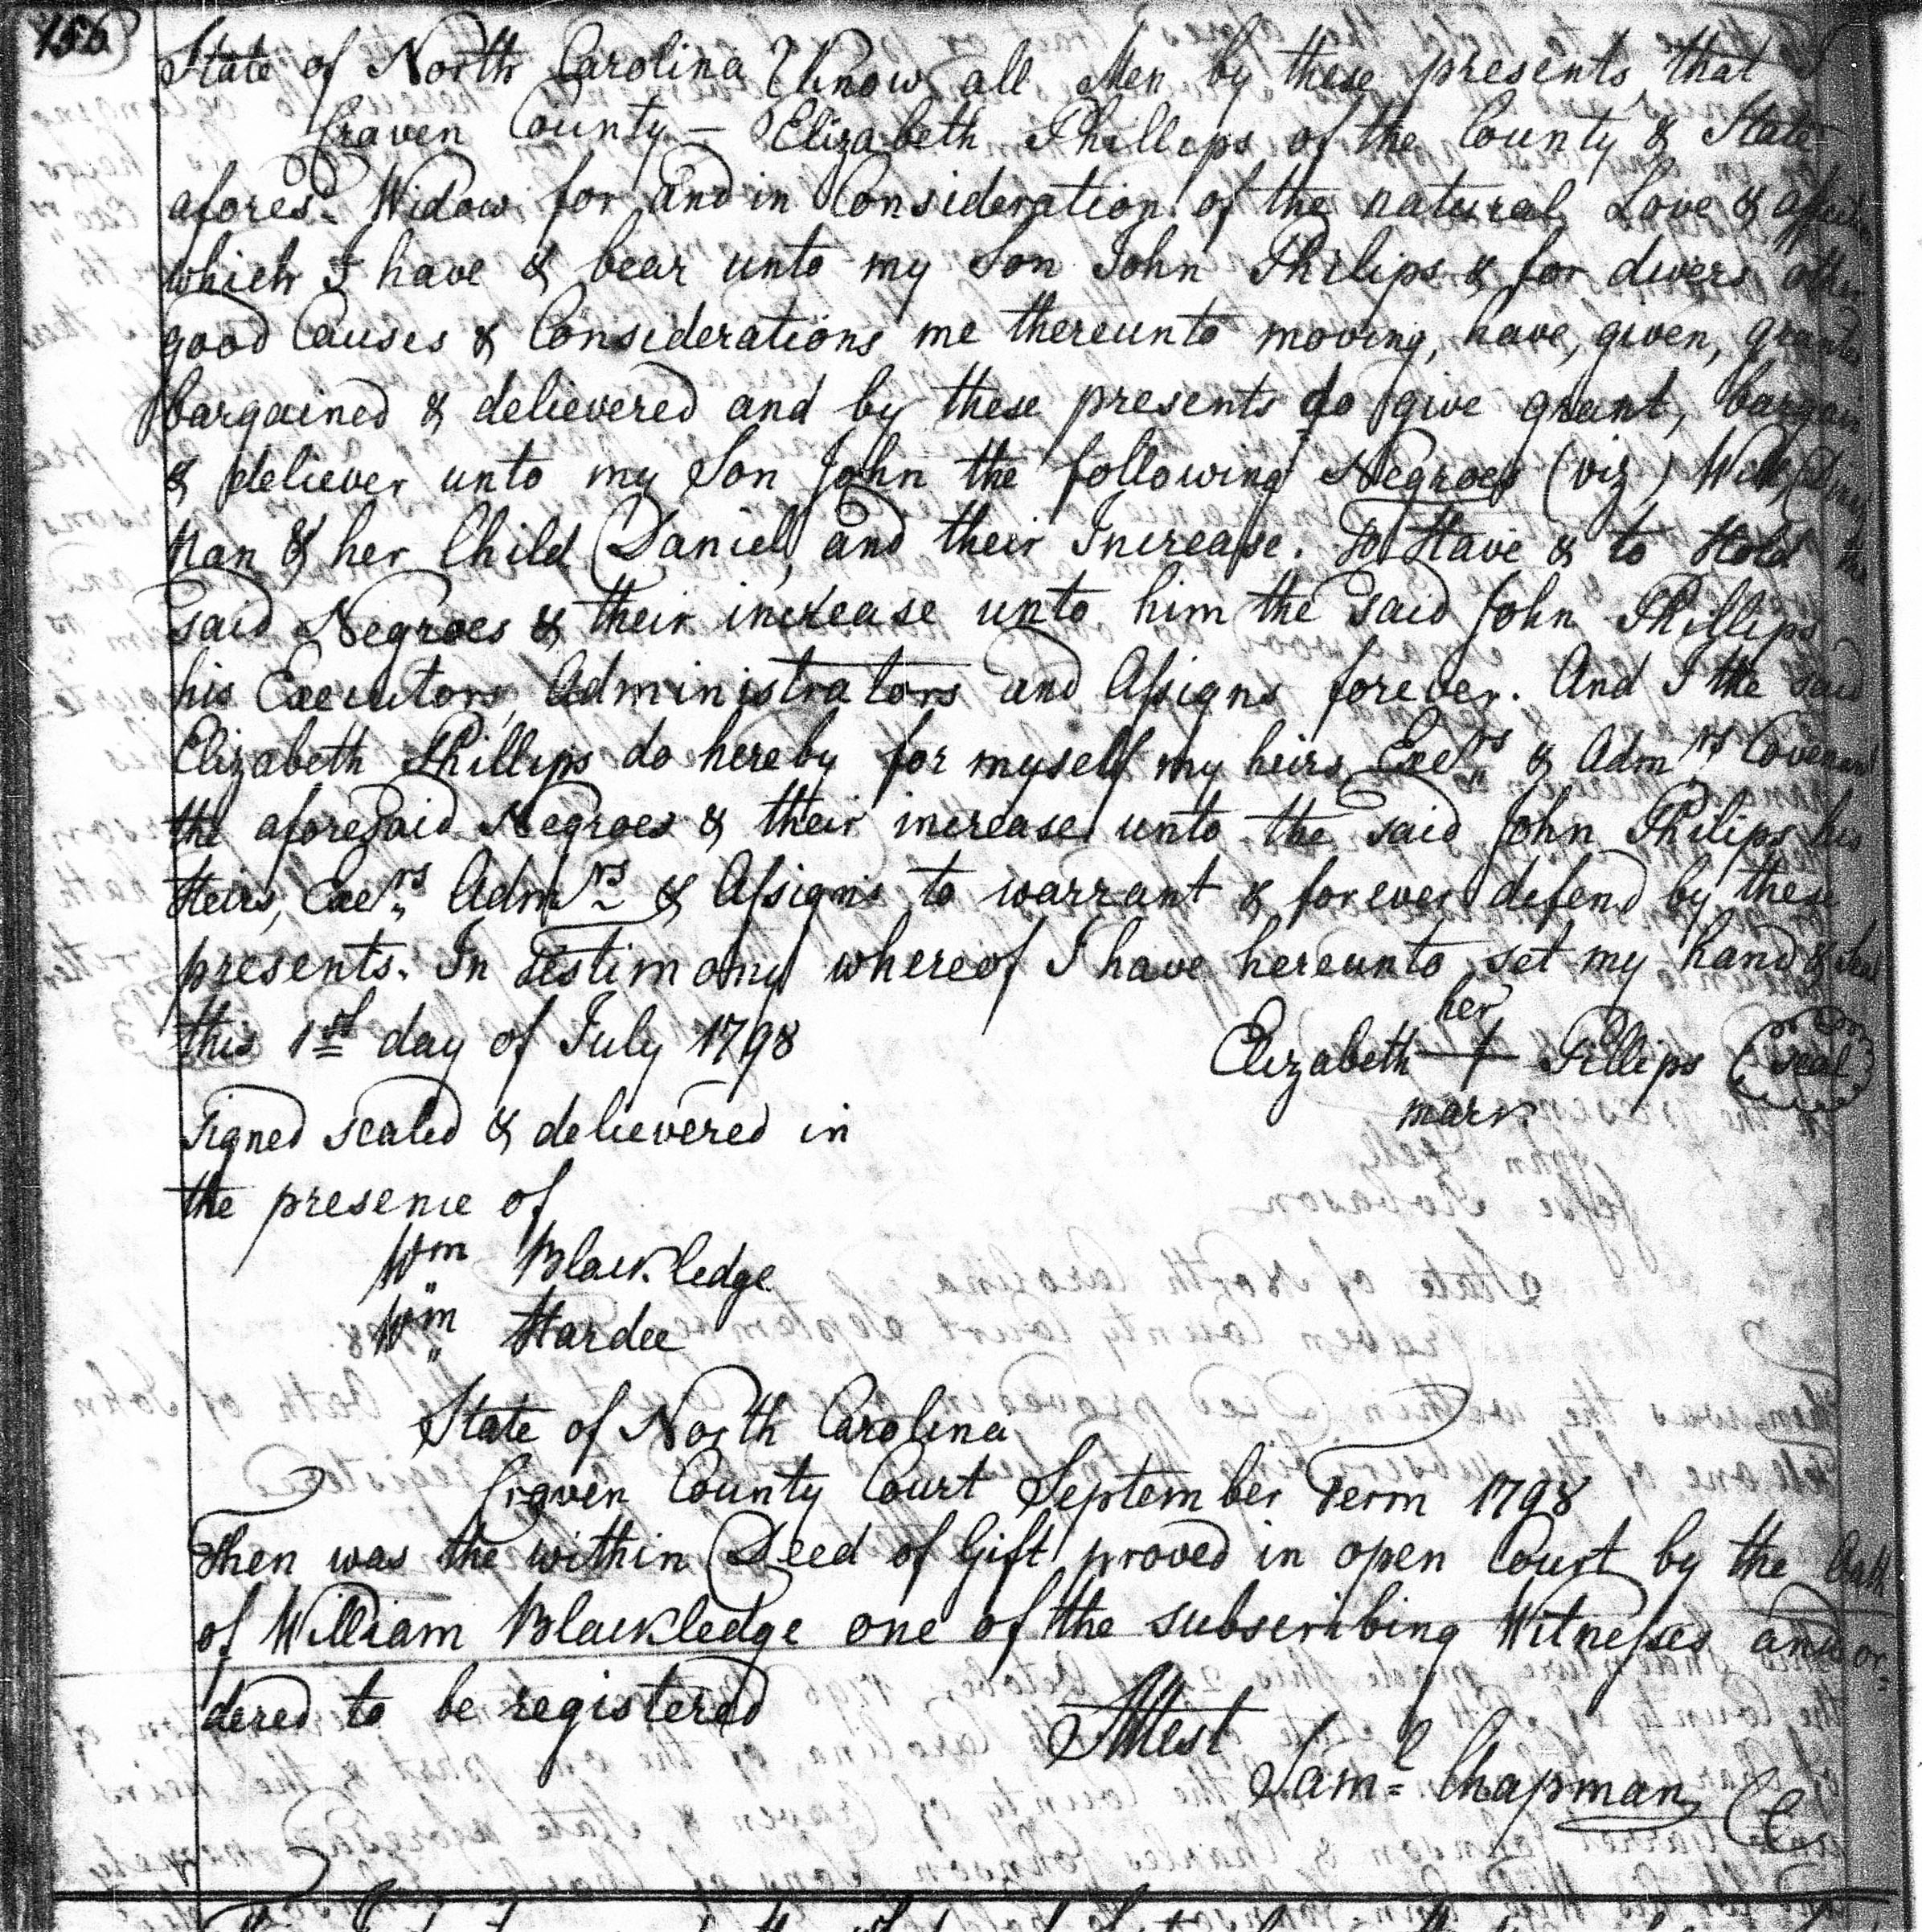 156
State of North Carolina } Know all Men by these presents, that I
Craven County — } Elizabeth Phillips of the County & State
afores.d Widow for and in Consideration of the natural Love &
which I have & bear unto my Son John Philips & for divers other
good Causes & Considerations me thereunto moving, have, given,
bargained & delievered and by these presents do give grant, bargain
& deliever unto my Son John the following Negroes (viz)
Nan & her Child Daniel, and their Increase. To Have & to Hold the
said Negroes & their increase unto him the said John Phillips
his Executors, Administrators and Assigns forever. And I the said
Elizabeth Phillips do hereby for myself my heirs Exe.rs & Adm.rs Covenant
the aforesaid Negroes & their increase unto the said John Philips his
Heirs, Exe.rs Adm.rs & Assigns to warrant & forever defend by these
presents. In Testimony whereof I have hereunto set my hand & seal
this 1st day of July 1798
her
Elizabeth + Fillips (seal)
mark
Signed sealed & delievered in
the presence of
Wm Blackledge
Wm Hardee
State of North Carolina
Craven County Court September Term 1798
Then was the within Deed of Gift proved in open Court by the Oath
of William Blackledge one of the subscribing Witnesses and or=
dered to be registered
Attest
Saml Chapman